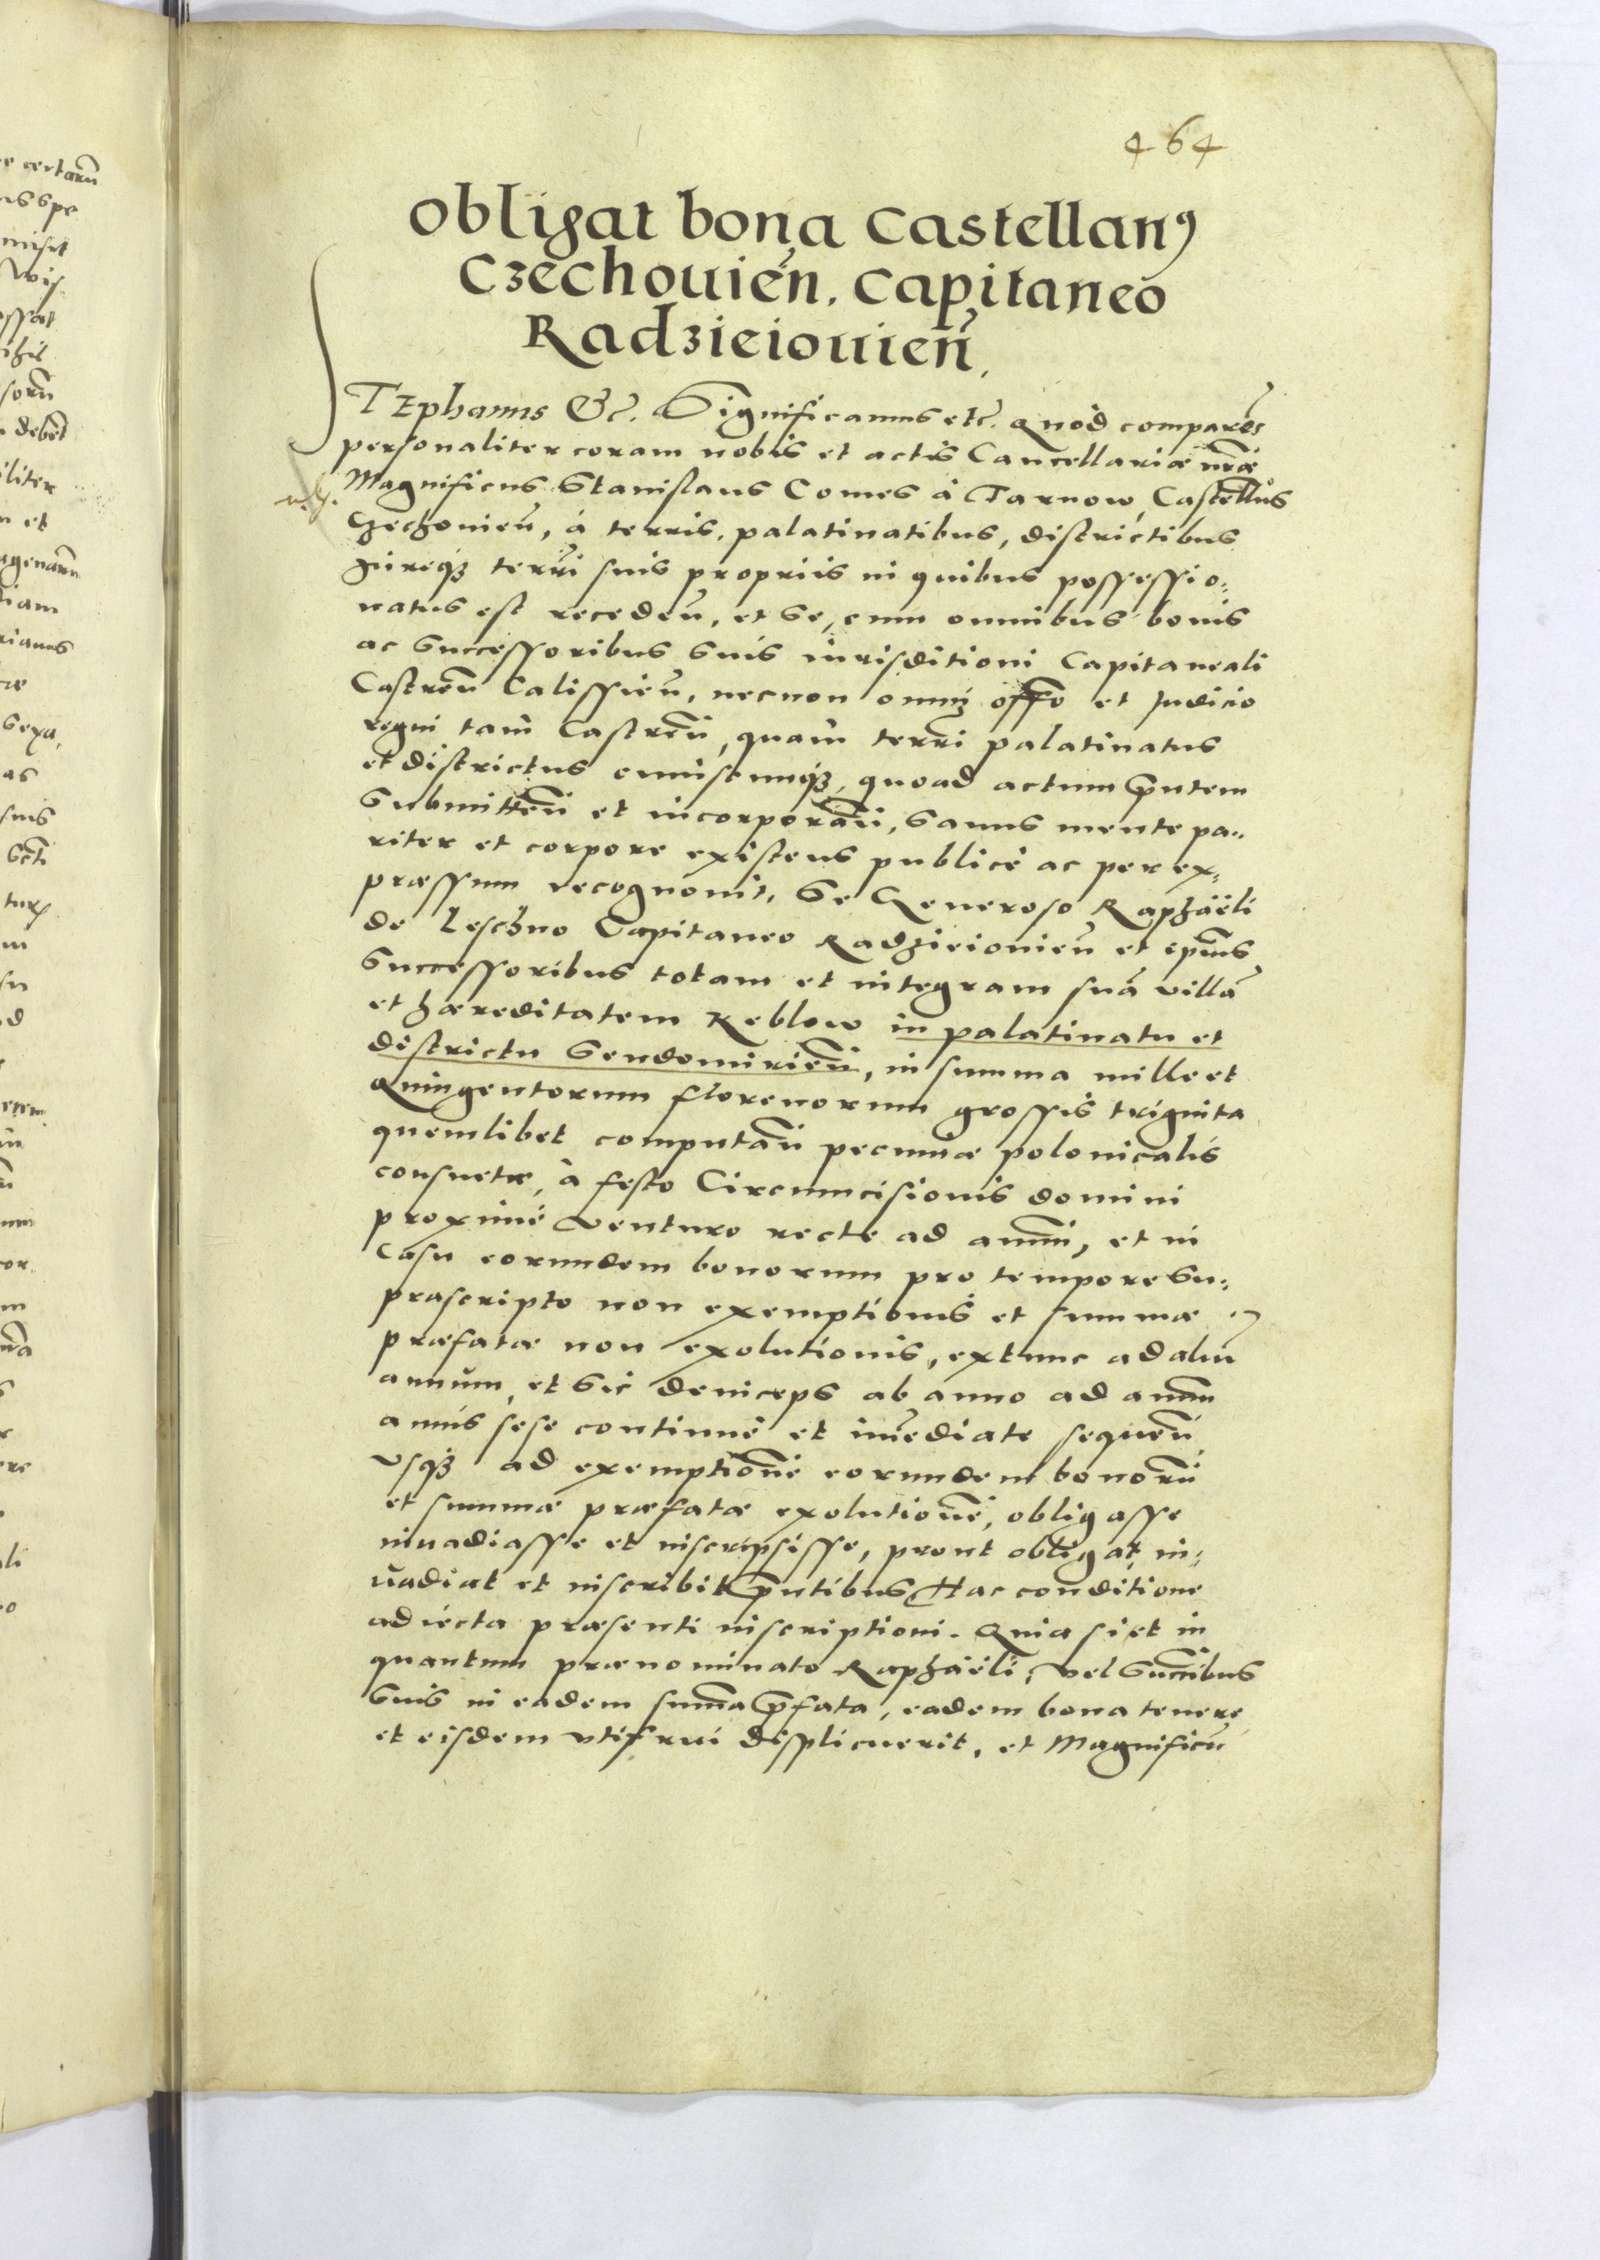 464
Obligat bona Castellanꝯ
Czechouien̄. Capitaneo
Radzieiouien̄.
STEphanus &c. Significamus etc. Quod comparen̄s
personaliter coram nobis et actis Cancellariæ nr̄æ
Magnificus Stanislaus Comes à Tarnow, Castelln̄s
Czechouien̄, à terris, palatinatibus, districtibus
iureqꝫ terrī suis propriis in quibus possessio⸗
natus est receden̄, et se, cum omnibus bonis
ac successoribus suis iurisditioni Capitaneali
Castren̄ Calissien̄, necnon omnj offō et Judicio
regni tam̄ Castren̄, quàm terrī palatinatus
et districtus cuiuscunqꝫ, quoad actum p̄ntem
submitten̄ et incorporan̄, sanus mente pa⸗
riter et corpore existens publicè ac per ex⸗
præssum recognouit. Se Generoso Raphaëli
de Leschno Capitaneo Radzieiouien̄ et ipsius
Successoribus totam et integram suā villā
et hæreditatem Keblow in palatinatu et
districtu Sendomirien̄, in summa mille et
Quingentorum florenorum grossis triginta
quemlibet computan̄ pecuniæ polonicalis
consuetæ, à festo Circumcisionis domini
proximè venturo recte ad annū, et in
casu eorundem bonorum pro tempore su⸗
prascripto non exemptionis et summæ
præfatæ non exolutionis, extunc ad aliū
annum, et sic deinceps ab anno ad annū
annis sese continuè et im̄ediate sequen̄
vsqꝫ ad exemptionē eorundem bonorū
et summæ præfatæ exolutionē, obligasse
inuadiasse et inscripsisse, prout obligat in⸗
uadiat et inscribit p̄ntibus Hac conditione
adiecta præsenti inscriptioni. Quia si et in
quantum prænominato Raphaëli, vel Succ̄ibus
suis in eadem sum̄a p̄fata, eadem bona tenere
et eisdem vtifrui displicuerit, et Magnificū